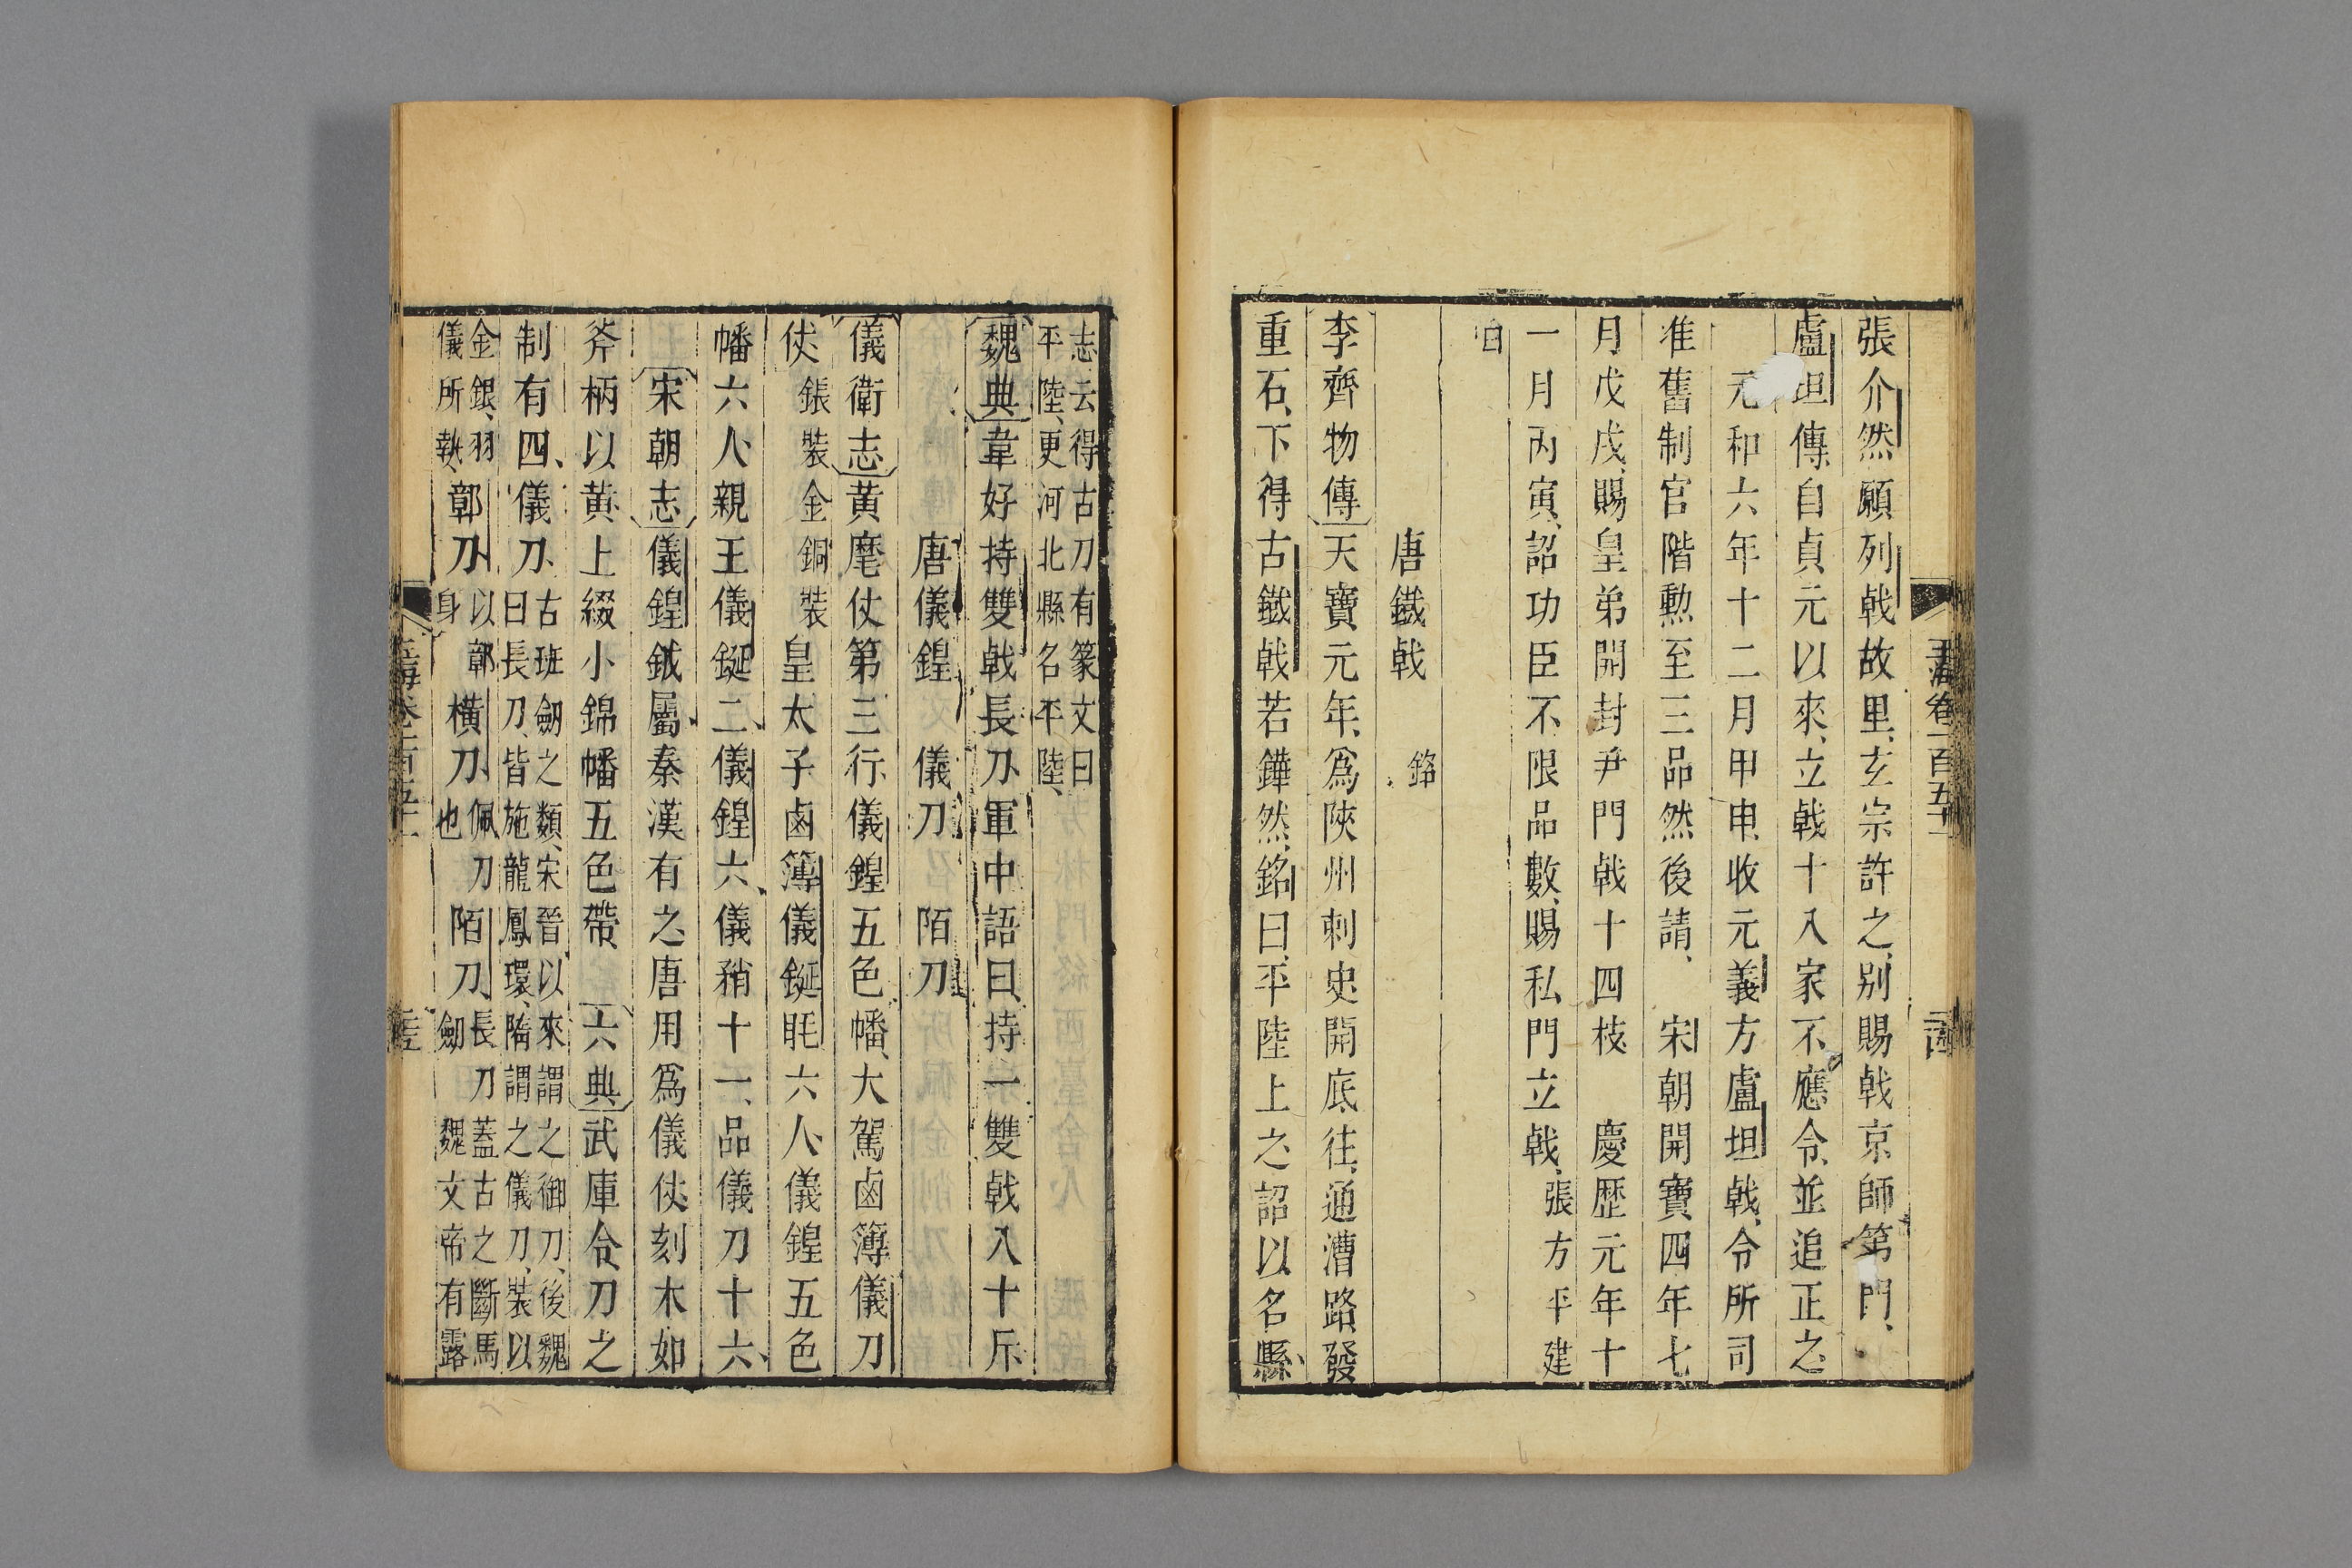 張介然願列戟故里玄宗許之别賜戟京師第門
盧坦傳自貞元以來立戟十八家不應令並追正之
元和六年十二月甲申收元義方盧坦戟令所司
准舊制官階勲至三品然後請　宋朝開寶四年七
月戊戌賜皇弟開封尹門戟十四枝　慶歷元年十
一月丙寅詔功臣不限品數賜私門立戟張方平建
白
唐鐵戟　銘
李齊物傳天寶元年為陝州刺史開底柱通漕路發
重石下得古鐵戟若鏵然銘曰平陸上之詔以名縣
志云得古刀有篆文曰
平陸更河北縣名平陸
魏典韋好持雙戟長刀軍中語曰持一雙戟八十斤
唐儀鍠　儀刀　陌刀
儀衛志黄麾仗第三行儀鍠五色幡大駕鹵簿儀刀
仗銀裝金銅裝皇太子鹵簿儀鋋毦六人儀鍠五色
幡六人親王儀鋋二儀鍠六儀矟十一品儀刀十六
宋朝志儀鍠鉞屬秦漢有之唐用為儀仗刻木如
斧柄以黄上綴小錦幡五色帶　六典武庫令刀之
制有四儀刀古班劒之類宋晉以來謂之御刀後魏
曰長刀皆施龍鳳環隋謂之儀刀裝以
金銀羽
儀所執鄣刀以鄣
身橫刀佩刀
也陌刀長刀蓋古之斷馬
劒　魏文帝有露
玉海卷一百五十一